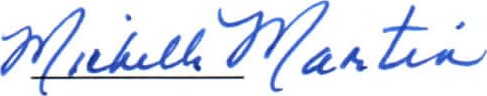 Michelle Martin